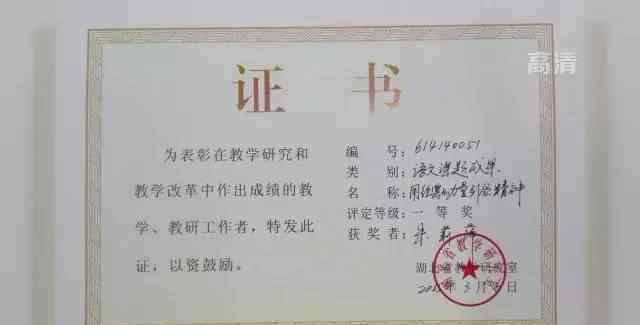 高清
证 书
为表彰在教学研究和
教学改革中作出成绩的教
学、教研工作者，特发此
证，以资鼓励。
编 号：614140051
类 别：语文课题成果
名 称：用经典的力量引领精神
评定等级：一 等 奖
获 奖 者：朱
湖北省教学研究室
月 日